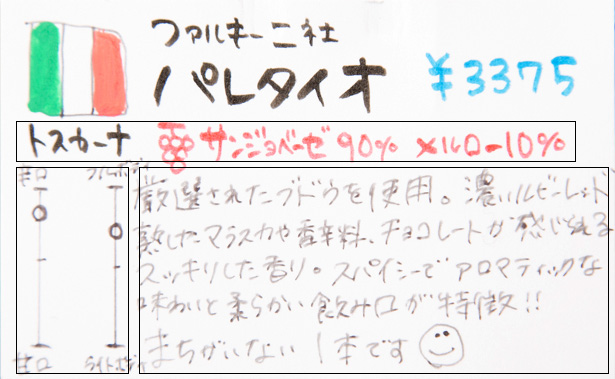 ファルキーニ社
パレタイオ ¥3375
トスカーナ サンジョベーゼ 90% メルロー10%
辛口 フルボディ
厳選されたブドウを使用。濃いルビーレッド
熟したマラスカや香辛料、チョコレートが感じられる
スッキリした香り。スパイシーでアロマティックな
味わいと柔らかい飲み口が特徴!!
まちがいない1本です
甘口 ライトボディ